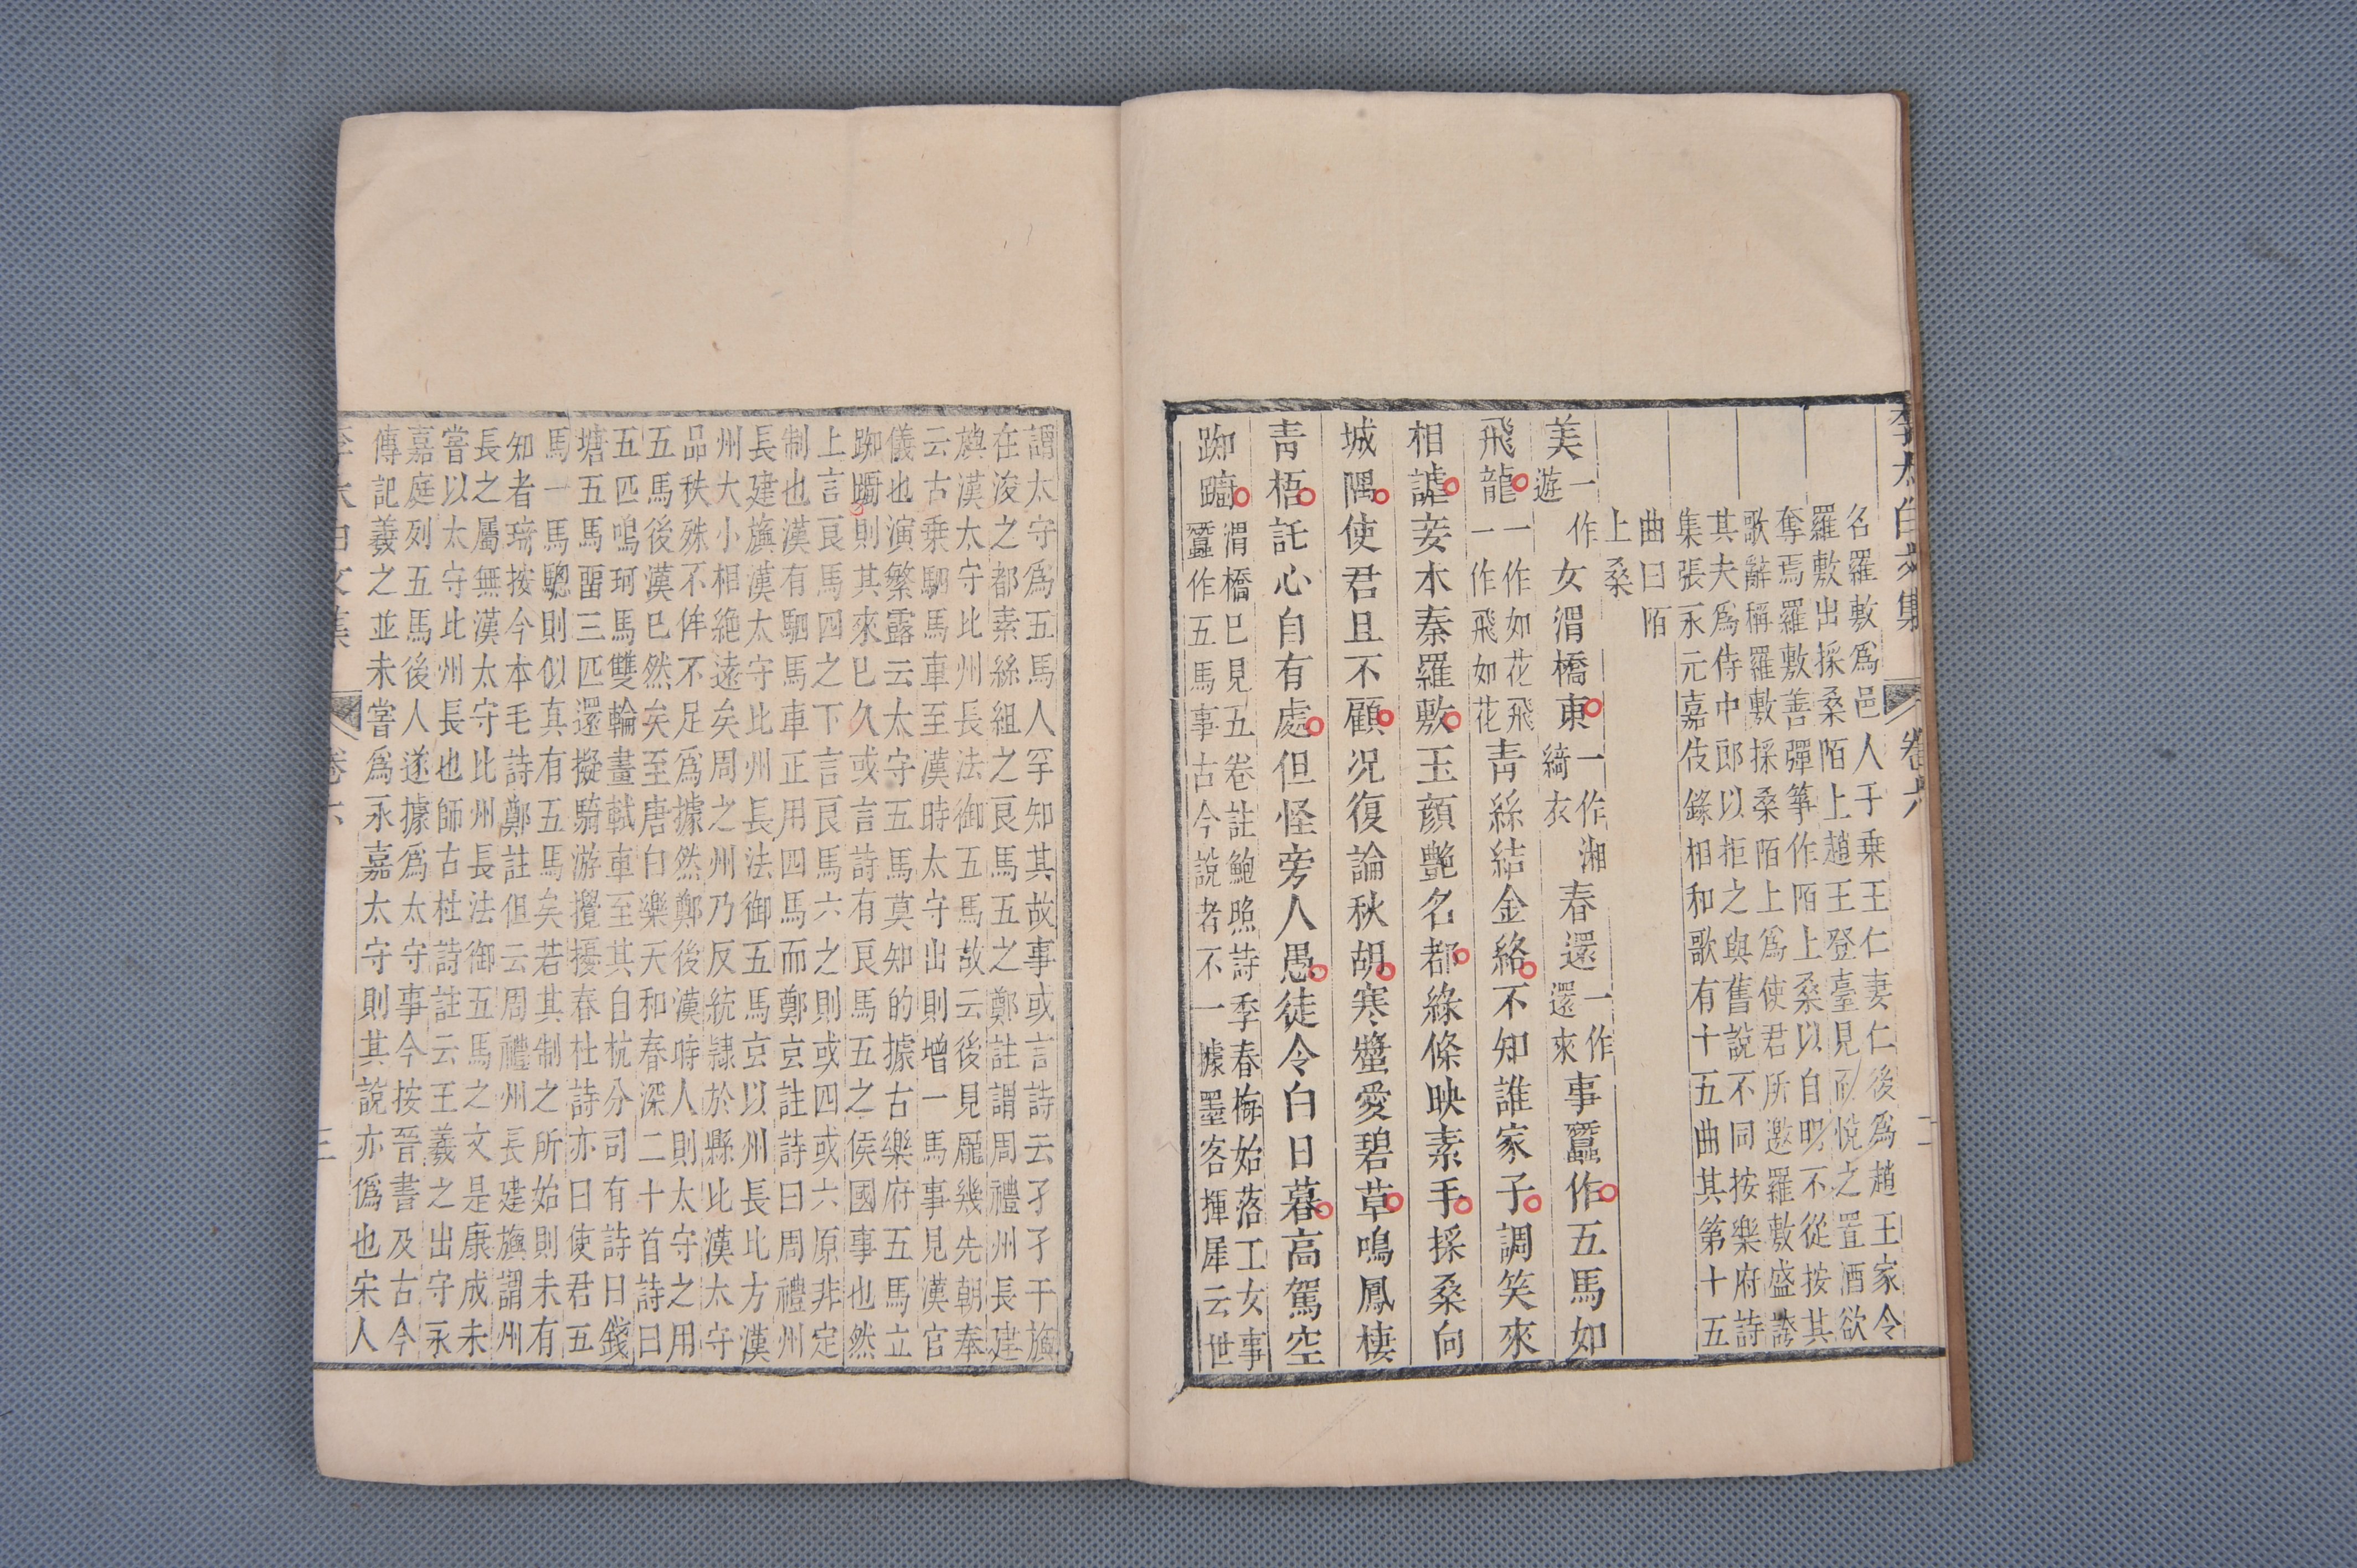 李太白文集 卷六 二
名羅敷爲邑人千乗王仁妻仁後爲趙王家令
羅敷出採桑陌上趙王登臺見而悅之置酒欲
奪焉羅敷善彈筝作陌上桑以自明不從按其
歌辭稱羅敷採桑陌上爲使君所邀羅敷盛誇
其夫爲侍中郎以拒之與舊說不同按樂府詩
集張永元嘉伎錄相和歌有十五曲其第十五
曲曰陌
上桑
美一作遊女渭橋東一作湘綺衣春還一作還來事蠶作五馬如
飛龍一作如花飛一作飛如花青絲結金絡不知誰家子調笑來
相謔妾本秦羅敷玉顏艷名都綠條映素手採桑向
城隅使君且不顧况復論秋胡寒螿愛碧草鳴鳳棲
青梧託心自有處但怪旁人愚徒令白日暮高駕空
踟躕渭橋巳見五卷註鮑照詩季春梅始落工女事
蠶作五馬事古今說者不一據墨客揮犀云世
謂太守爲五馬人罕知其故事或言詩云孑孑干旟
在浚之都素絲組之良馬五之鄭註謂周禮州長建
旟漢太守比州長法御五馬故云後見龎幾先朝奉
云古乗駟馬車至漢時太守出則增一馬事見漢官
儀也演繁露云太守五馬莫知的據古樂府五馬立
踟躕則其來巳久或言詩有良馬五之侯國事也然
上言良馬四之下言良馬六之則或四或六原非定
制也漢有駟馬車正用四馬而鄭玄註詩曰周禮州
長建旟漢太守比州長法御五馬玄以州長比方漢
州大小相絶遠矣周之州乃反統隷於縣比漢太守
品秩殊不侔不足爲據然鄭後漢時人則太守之用
五馬後漢巳然矣至唐白樂天和春深二十首詩曰
五匹鳴珂馬雙輪畫軾車至其自杭分司有詩曰錢
塘五馬畱三匹還擬騎游攪擾春杜詩亦曰使君五
馬一馬驄則似真有五馬矣若其制之所始則未有
知者琦按今本毛詩鄭註但云周禮州長建旟謂州
長之屬無漢太守比州長法御五馬之文是康成未
嘗以太守比州長也師古杜詩註云王羲之出守永
嘉庭列五馬後人遂據爲太守事今按晉書及古今
傳記羲之並未嘗爲永嘉太守則其說亦僞也宋人
李太白文集 卷六 三